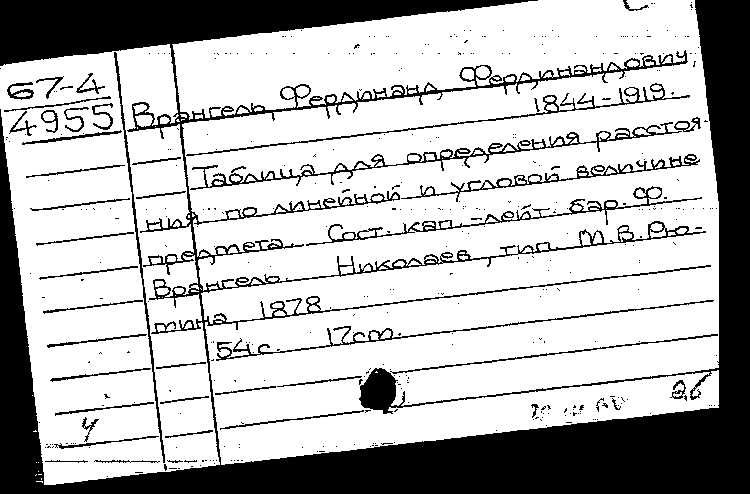 67-4
4955
Врангель, Фердинанд Фердинандович,
1844-1919.
Таблица для определения расстоя-
ния по линейной и угловой величине
предмета. Сост. кап.-лейт. бар. Ф.
Врангель. Николаев, тип. М.В.Рю-
мина, 1878.
54 с. 17см.
У